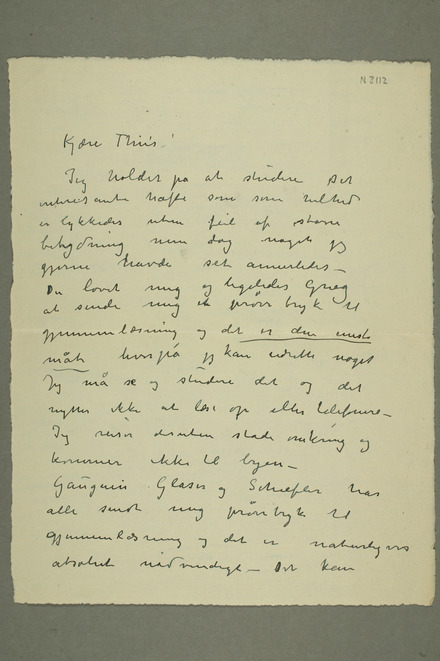 N 3112
Kjære Thiis!
Jeg holder på at studere det
interessante hæfte som som helhed
er lykkedes uten feil af større
betydning men dog noget jeg
gjerne havde set annerledes –
Du lovet mig og ligeledes Grieg
at sende mig et prøvetryk til
gjennemlæsning og det er den eneste
måte hvorpå jeg kan udrette noget
Jeg må se og studere det og det
nytter ikke at læse op eller telefonere –
Jeg reiser desuten stadig omkring og
kommer ikke til byen –
Gauguin Glaser og Schiefler har
alle sendt mig prøvetryk til
gjennemlæsning og det er naturligvis
absolut nødvendigt – Det kan